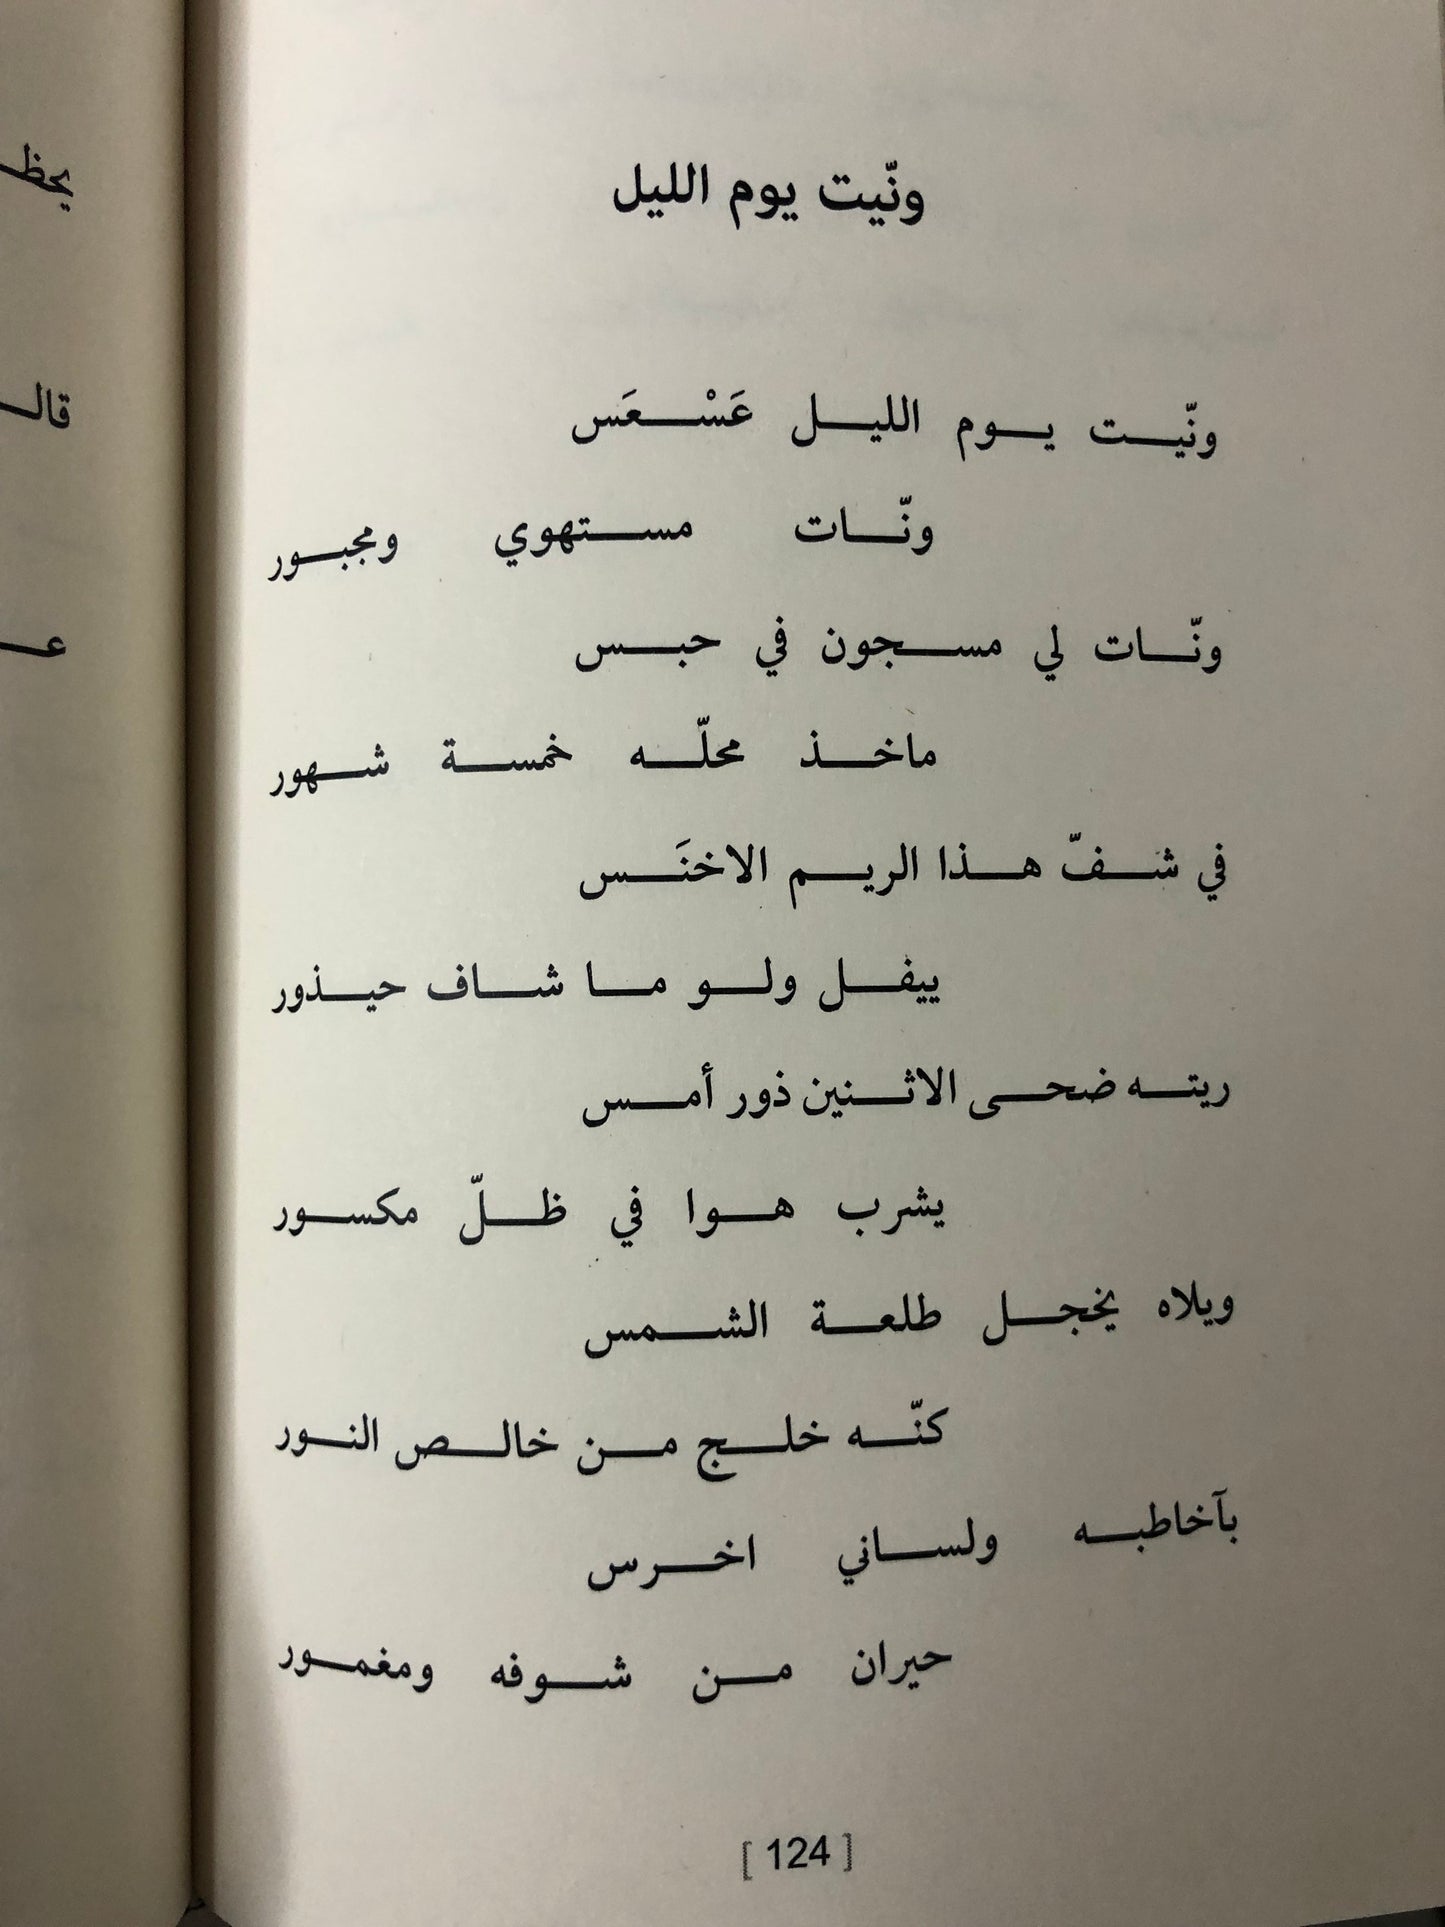 ونّيت يوم الليل
ونّيت يوم الليل عَسْعَس
ونّات مستهوي ومجبور
ونّات لي مسجون في حبس
ماخذ محلّه خمسة شهور
في شفّ هذا الريم الاخنَس
ييفل ولو ما شاف حيذور
ريته ضحى الاثنين ذور أمس
يشرب هوا في ظلّ مكسور
ويلاه يخجل طلعة الشمس
كنّه خلج من خالص النور
بآخاطبه ولساني اخرس
حيران من شوفه ومغمور
[ 124 ]
يحظ
قالـ
عـ